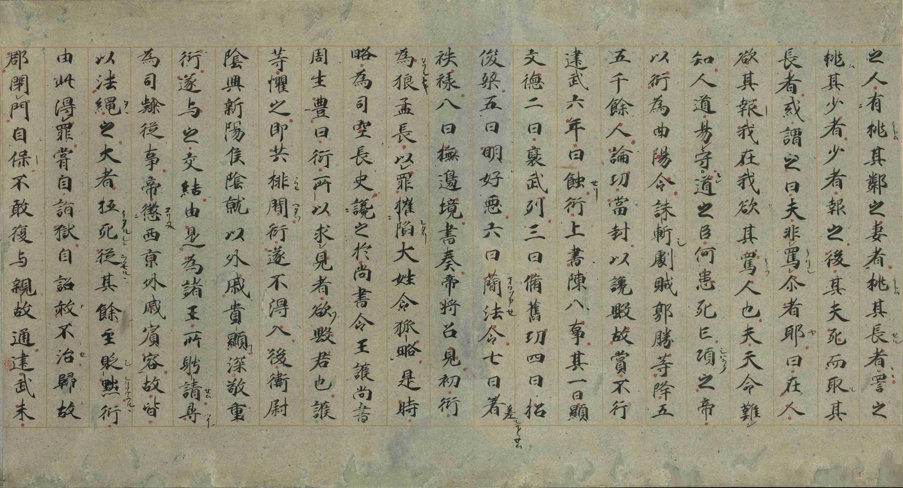 之人有挑其鄰之妻者挑其長者詈之
挑其少者少者報之後其夫死而取其
長者或謂之曰夫非罵尒者耶曰在人
欲其報我在我欲其罵人也夫天命難
知人道易守守道之臣何患死亡項之帝
以衍為曲陽令誅斬劇賊郭勝等降五
五千餘人論功當封以讒毀故賞不行
建武六年日蝕衍上書陳八事其一曰顯
文德二曰襃武烈三曰脩舊功四曰招
俊桀五曰明好惡六曰蕳法令七曰著
秩祿八曰撫邊境書奏帝將召見初衍
為狼孟長以罪摧陷大姓令狐略是時
略為司空長史讒之於尚書令王護尚書
周生豐曰衍所以求見者欲毀君也護
等懼之即共排閒衍遂不得入後衛尉
陰興新陽侯陰就以外戚貴顯深敬重
衍遂与之交結由是為諸王所聘請尋
為司隸從事帝懲西京外戚賓客故皆
以法繩之大者抵死徙其餘至貶黜衍
由此得罪嘗自詣獄自詔赦不治歸故
郡閇門自保不敢復与親故通建武末